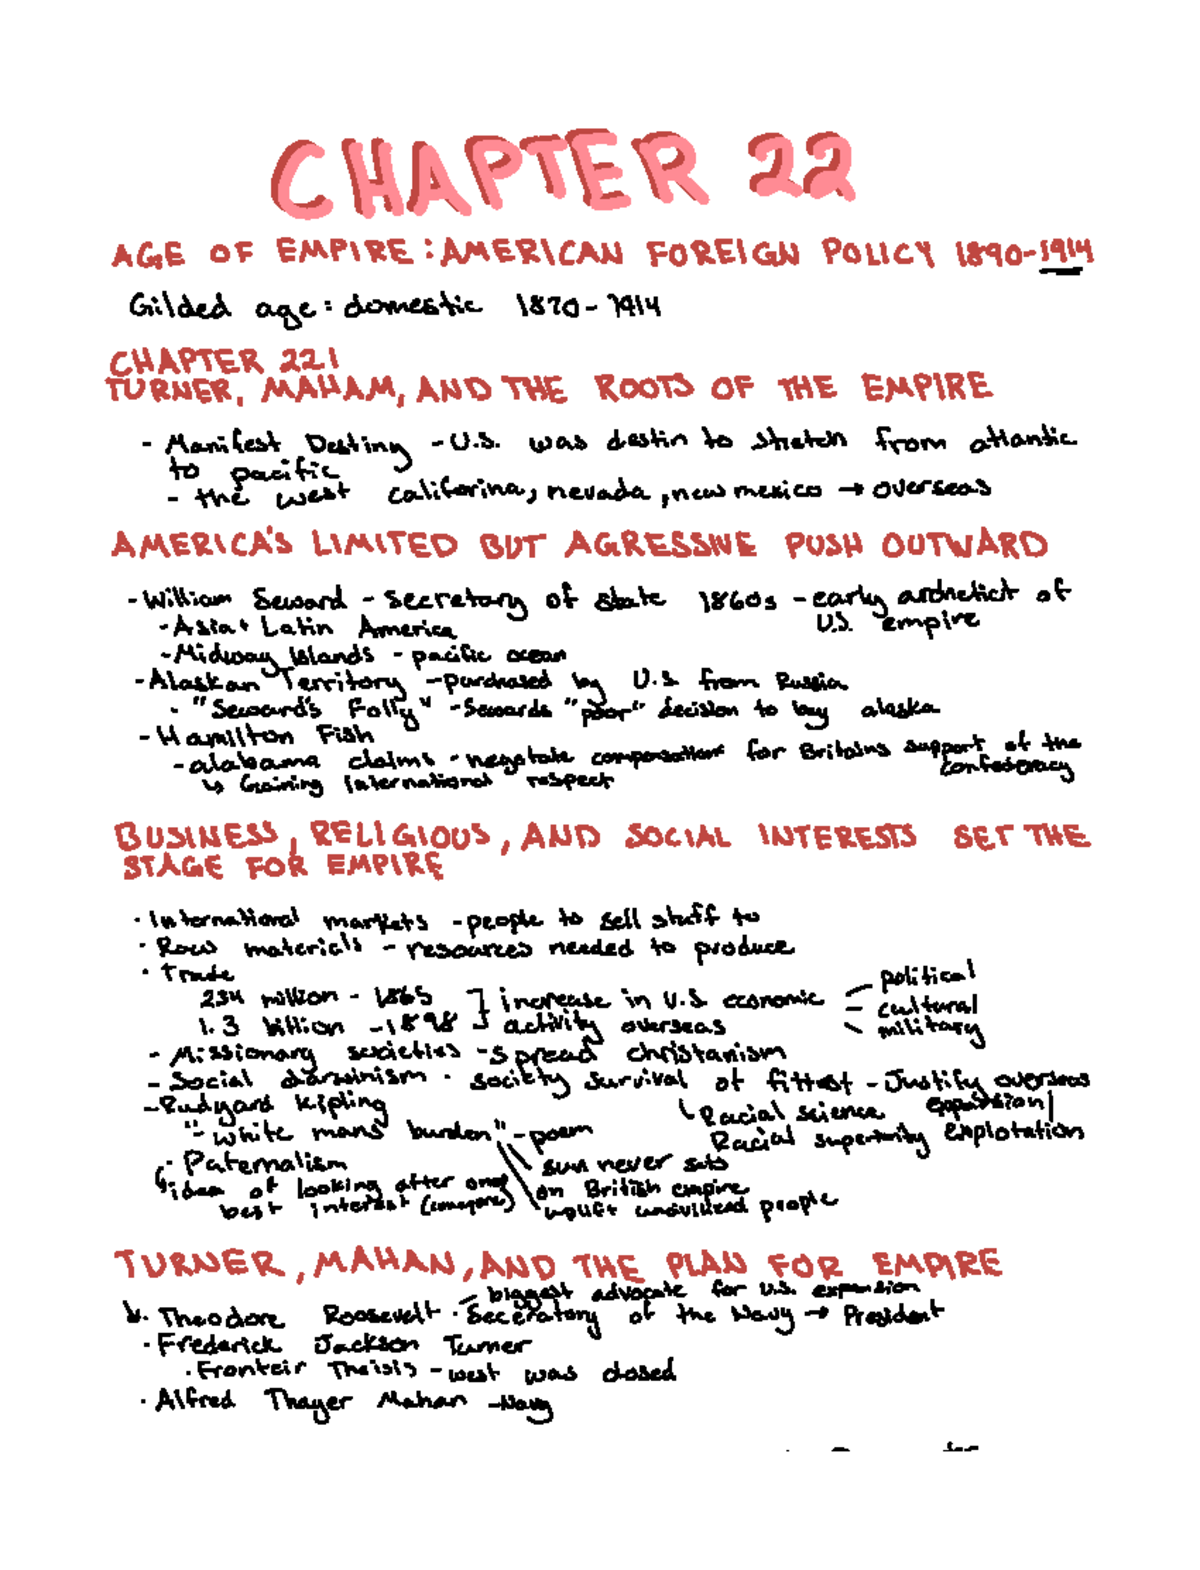 CHAPTER 22
AGE OF EMPIRE: AMERICAN FOREIGN POLICY 1890-1914
Gilded age: domestic 1870-1914
CHAPTER 22.1
TURNER, MAHAM, AND THE ROOTS OF THE EMPIRE
- Manifest Destiny - U.S. was destin to stretch from atlantic
to pacific
- the west califorina, nevada, new mexico → overseas
AMERICA'S LIMITED BUT AGRESSIVE PUSH OUTWARD
- William Seward - secretary of state 1860s - early ardnetict of
U.S. empire
- Asia + Latin America
- Midway Islands - pacific ocean
- Alaskan Territory - purchased by U.S. from Russia
· "Seward's Folly" - Sewards "poor" decision to buy alaska
- Hamilton Fish
- alabama claims - negotate compensation for Britains support of the
confederacy
↳ Gaining International respect
BUSINESS, RELIGIOUS, AND SOCIAL INTERESTS SET THE
STAGE FOR EMPIRE
· International markets - people to sell stuff to
· Raw materials - resources needed to produce
· Trade
234 million - 1865 ] increase in U.S. economic - political
1.3 billion - 1898 activity overseas - cultural
- military
- Missionary societies - spread christanism
- Social darwinism - society survival of fittest - Justify overseas
expansion
- Rudyard Kipling
Racial science
"- white mans burden" - poem
Racial superiority explotation
· Paternalism
sun never sets
idea of looking after ones
on British empire
best interest
uplift people
TURNER, MAHAN, AND THE PLAN FOR EMPIRE
- biggest advocate for U.S. expansion
· Theodore Roosevelt · Seceratory of the Navy → President
· Frederick Jackson Turner
· Fronteir Theisis - west was closed
· Alfred Thayer Mahan - Navy